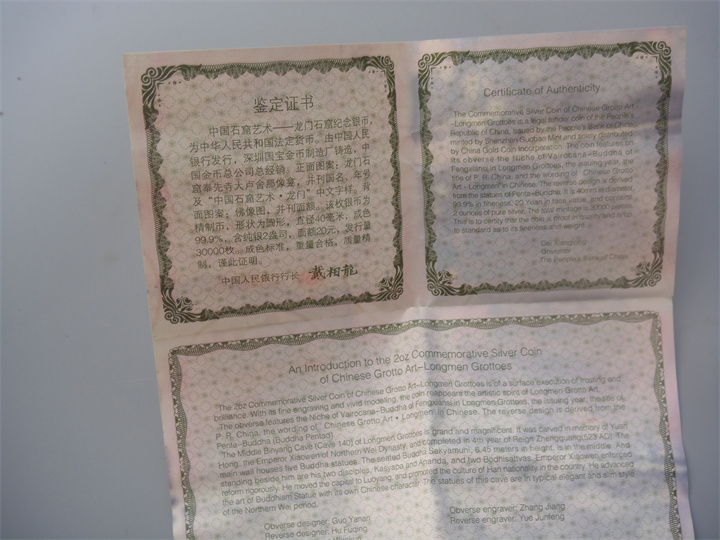 鉴定证书
中国石窟艺术——龙门石窟纪念银币,
为中华人民共和国法定货币。由中国人民
银行发行,深圳国宝金币制造厂铸造,中
国金币总公司总经销。正面图案:龙门石
窟奉先寺大卢舍那像龛,并刊国名、年号
及“中国石窟艺术·龙门”中文字样。背
面图案:佛像图,并刊面额。该枚银币为
精制币,形状为圆形,直径40毫米,成色
99.9%,含纯银2盎司,面额20元,发行量
30000枚。成色标准,重量合格,质量精
制,谨此证明。
中国人民银行行长 戴相龙
Certificate of Authenticity
The Commemorative Silver Coin of Chinese Grotto Art
-Longmen Grottoes is a legal tender coin of the People's
Republic of China, issued by the People's Bank of China,
minted by Shenzhen Guobao Mint and distributed
by China Gold Coin Incorporation. The coin features on
its obverse the Niche of Vairocana-Buddha of
Fengxiansi in Longmen Grottoes, the issuing year, the
title of P. R. China, and the wording of Chinese Grotto
Art · Longmen in Chinese. The reverse design is derived
from the statues of Penta-Buddha. It is 40mm in diameter,
99.9% in fineness, 20 Yuan in face value, and contains
2 ounces of pure silver. The total mintage is 30000 pieces.
This is to certify that the coin is proof in quality and
to standard as to its fineness and weight.
Dai Xianglong
Governor
The People's Bank of China
An Introduction to the 2oz Commemorative Silver Coin
of Chinese Grotto Art-Longmen Grottoes
The 2oz Commemorative Silver Coin of Chinese Grotto Art-Longmen Grottoes is of a surface execution of frosting and
brilliance. With its fine engraving and vivid modeling, the coin reappears the artistic spirit of Longmen Grotto Art.
The obverse features the Niche of Vairocana-Buddha of Fengxiansi in Longmen Grottoes, the issuing year, the title of
P. R. China, the wording of "Chinese Grotto Art · Longmen" in Chinese. The reverse design is derived from the
Penta-Buddha (Buddha Pentad)
The Middle Binyang Cave (Cave 140) of Longmen Grottoes is grand and magnificent. It was carved in memory of Yuan
Hong, the Emperor Xiaowen of Northern Wei Dynasty, and completed in 4th year of Reign Zhengguang(523 AD). The
main wall houses five Buddha statues. The seated Buddha Sakyamuni, 6.45 meters in height, is in the middle. And
standing beside him are his two disciples, Kasyapa and Ananda, and two Bodhisattvas. Emperor Xiaowen, enforced
reform rigorously. He moved the capital to Luoyang, and promoted the culture of Han nationality in the country. He advanced
the art of Buddhism Statue with its own Chinese character. The statues of this cave are in typical elegant and slim style
of the Northern Wei period.
Obverse designer: Guo Yanan
Obverse engraver: Zhang Jiang
Reverse designer: Hu Fuqing
Reverse engraver: Yue Junfeng